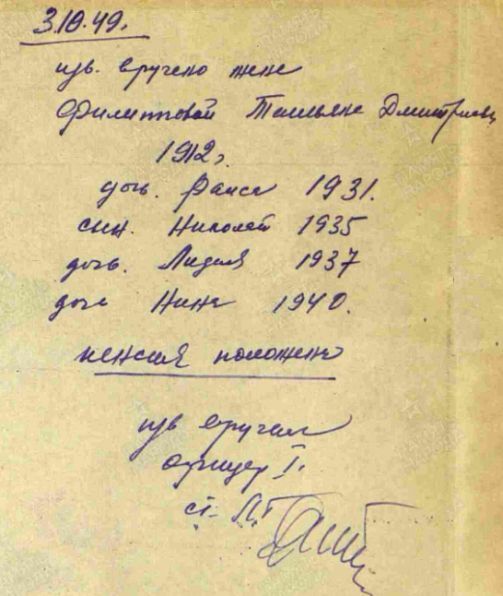 3.10.49.
изв. вручено жене
Филипповой Татьяне Дмитриевне
1912г.
дочь. Раиса 1931.
сын. Николай 1935
дочь. Лидия 1937
дочь Нина 1940.
пенсия положена
изв вручил
офицер I.
ст. лт